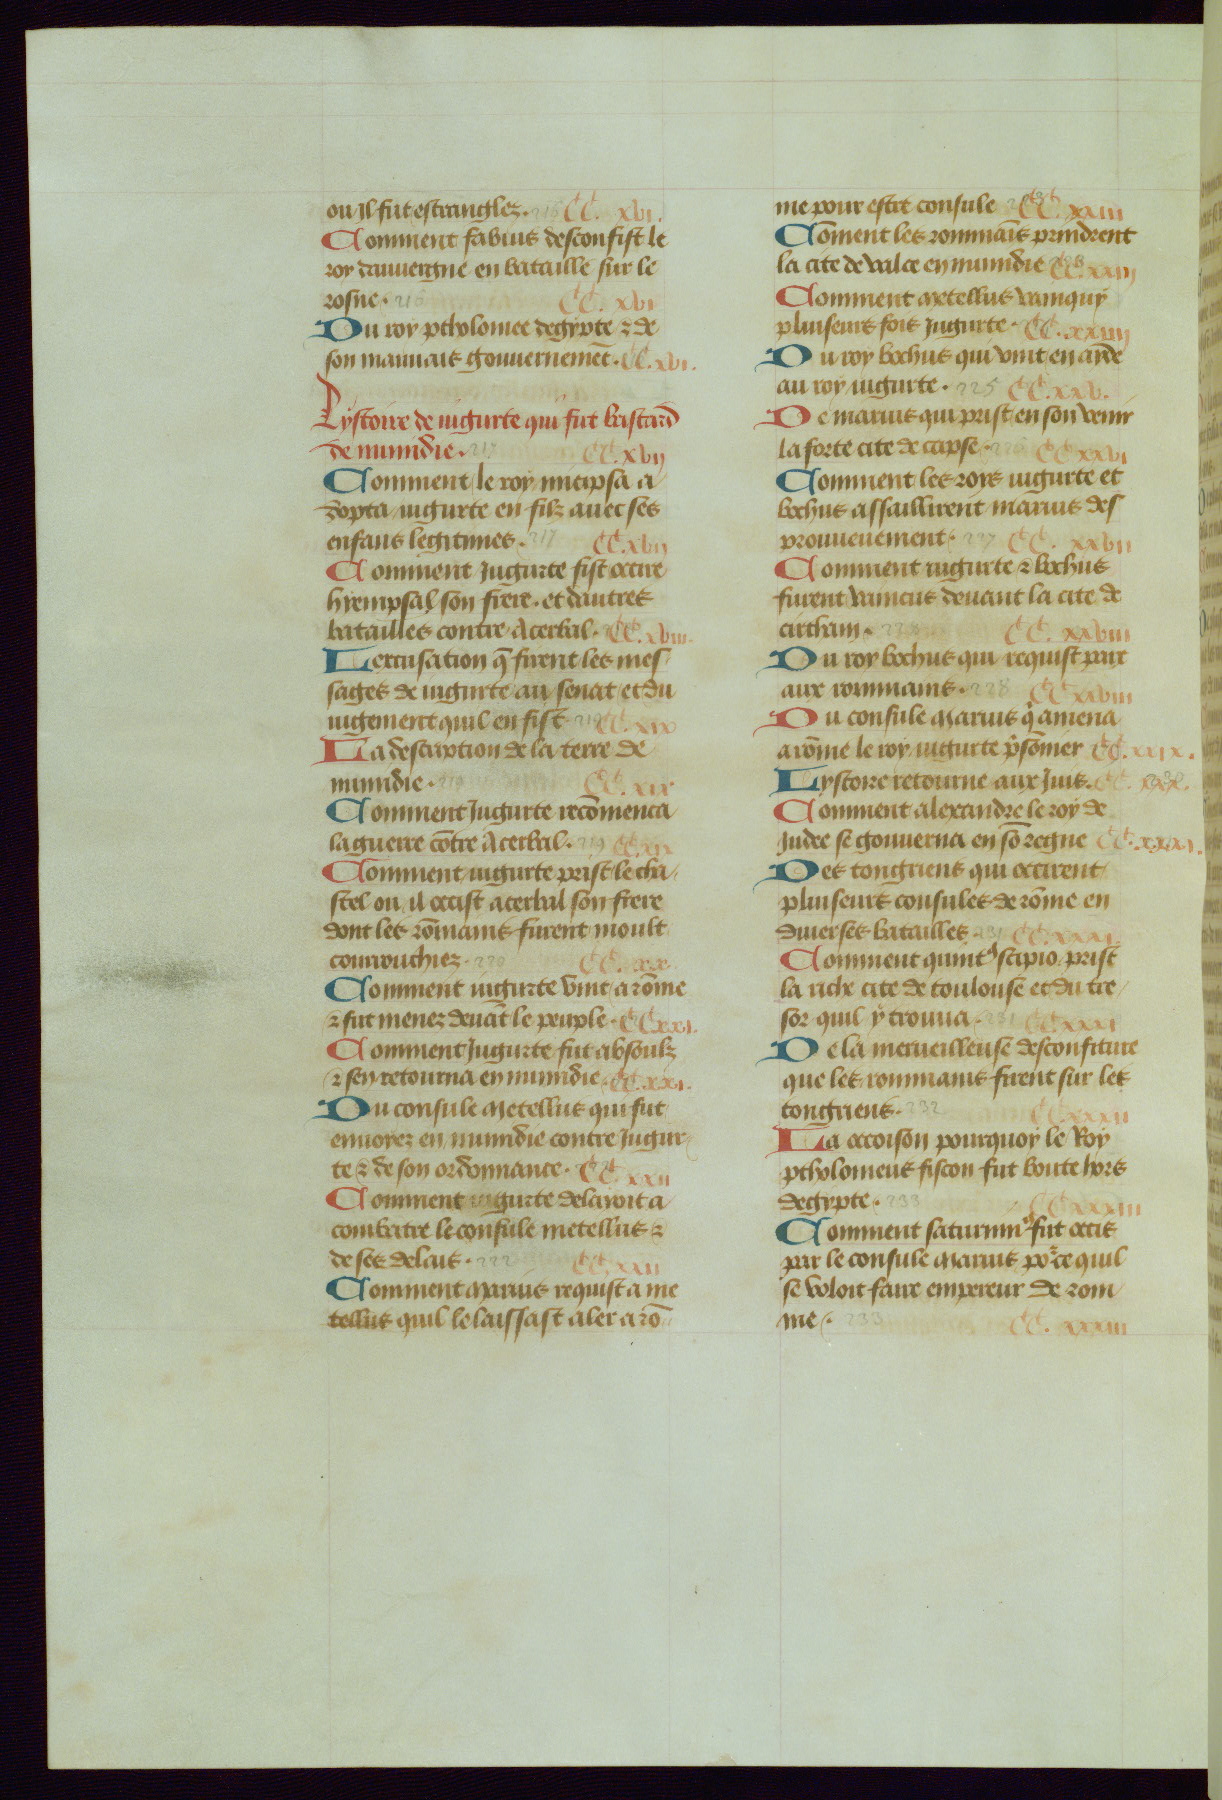 ou il fut estranglez. 216 CC. xvi.
Comment fabius desconfist le
roy dauuergne en bataille sur le
rosne. 216 CC. xvi
Du roy ptholomee degypte ⁊ de
son mauuais gouuernemēt. CC. xvi.
Lystoire de iugurte qui fut bastard
de numidie. 217 CC. xvii
Comment le roy micipsa a
dopta iugurte en filz auec ses
enfans legitimes. 217 CC. xvii
Comment Jugurte fist occire
hyempsal son frere. et dautres
batailles contre Acerbal. CC. xviii.
Lexcusation q̄ firent les mes
sages de iugurte au senat et du
iugement quil en fist 219 CC. xix
La description de la terre de
numidie. 219 CC. xix
Comment Jugurte recōmenca
la guerre cōtre Acerbal. 219 CC. xix
Comment iugurte prist le cha
stel ou il occist acerbal son frere
dont les rōmains furent moult
courrouchiez. 220 CC. xx
Comment iugurte vint a rōme
⁊ fut menez deuāt le peuple. CC xxi.
Comment Jugurte fut absoulz
⁊ sen retourna en numidie. CC. xxi.
Du consule Metellus qui fut
enuoyez en numidie contre Jugur
te ⁊ de son ordonnance. CC. xxii
Comment iugurte delayoit a
combatre le consule metellus ⁊
de ses delais. 222 CC. xxii
Comment Marius requist a me
tellus quil le laissast aler a rō
me pour estre consule CC. xxiii
Cōment les rommais prindrent
la cite de valce en numidie CC. xxiii
Comment metellus vainquy
pluiseurs fois Jugurte. CC. xxiiii
Du roy bochus qui vint en ayde
au roy iugurte. 225 CC. xxv.
De marius qui prist en son venir
la forte cite de capse. 226 CC xxvi
Comment les roys iugurte et
bochus assaillirent marius des
prouueuement. 227 CC. xxvii
Comment iugurte ⁊ bochus
furent vaincus deuant la cite de
cirtham. 228 CC. xxviii
Du roy bochus qui requist paix
aux rommains. 228 CC xxviii
Du consule Marius q̇ amena
a rōme le roy iugurte p̄sōnier CC. xxix.
Lystoire retourne aux Juifs. CC. xxx.
Comment alexandre le roy de
Judee se gouuerna en sō regne CC. xxxi.
Des tongriens qui occirent
pluiseurs consules de rōme en
diuerses batailles. 231 CC. xxxi.
Comment quintꝰ scipio prist
la riche cite de toulouse et du tre
sor quil y trouua. 231 CC xxxi
De la merueilleuse desconfiture
que les rommains firent sur les
tongriens. 232 CC xxxii
La occoison pourquoy le Roy
ptholomeus fiscon fut boute hors
degypte. 233 CC xxxiii
Comment saturninꝰ fut occis
par le consule Marius po᷑ ce quil
se voloit faire empereur de rom
me. 233 CC. xxxiii